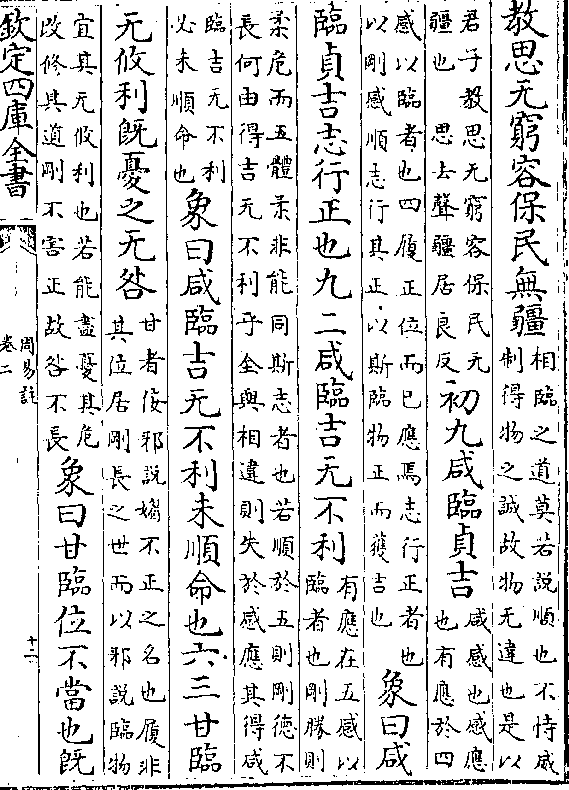 教思无窮容保民無疆相臨之道莫若說順也不恃威
制得物之誠故物无違也是以
君子教思无窮容保民无
疆也 思去聲疆居良反
初九咸臨貞吉咸感也感應
也有應於四
感以臨者也四履正位而已應焉志行正者也
以剛感順志行其正以斯臨物正而獲吉也
象曰咸
臨貞吉志行正也九二咸臨吉无不利有應在五感以
臨者也剛勝則
柔危而五體柔非能同斯志者也若順於五則剛德不
長何由得吉无不利乎全與相違則失於感應其得咸
臨吉无不利
必未順命也
象曰咸臨吉无不利未順命也六三甘臨
无攸利既憂之无咎甘者佞邪說媚不正之名也履非
其位居剛長之世而以邪說臨物
宜其无攸利也若能盡憂其危
改修其道剛不害正故咎不長
象曰甘臨位不當也既
欽定四庫全書
周易註
卷二
十二